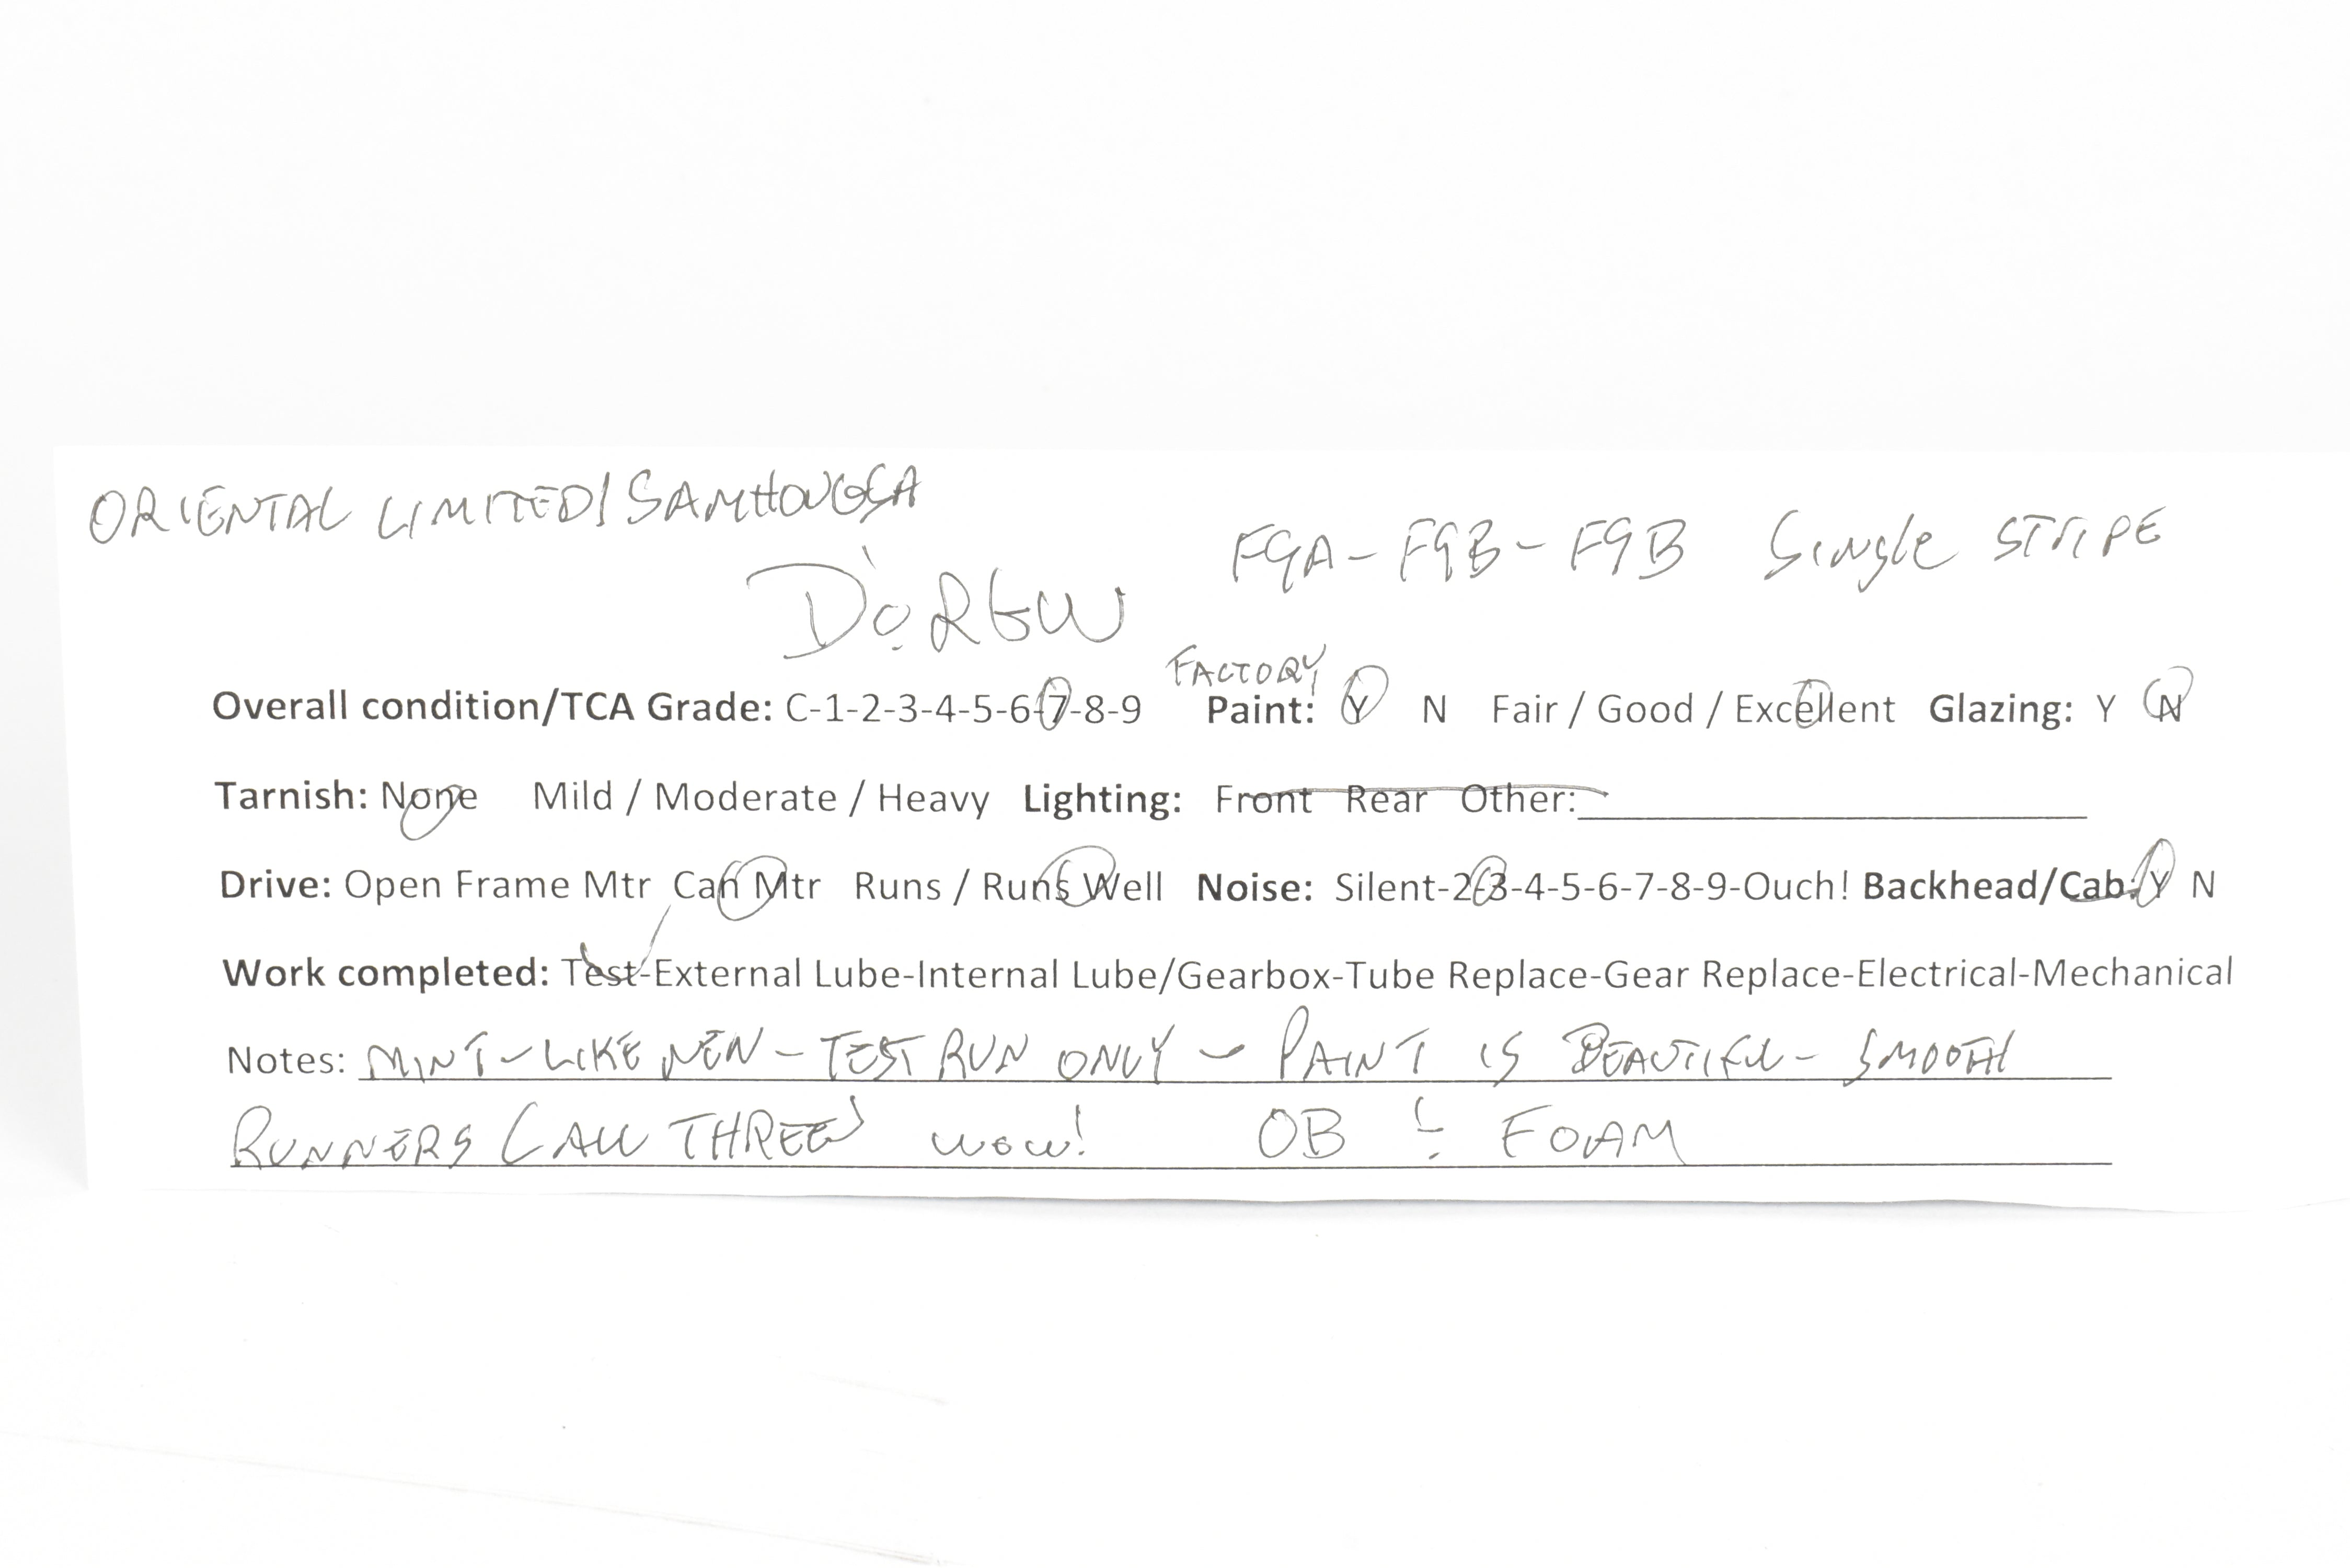 ORIENTAL LIMITED/SAMHONGSA
F9A-F9B-F9B Single STRIPE
D&RGW
FACTORY
Overall condition/TCA Grade: C-1-2-3-4-5-6-7-8-9 Paint: Y N Fair / Good / Excellent Glazing: Y N
Tarnish: None Mild / Moderate / Heavy Lighting: Front Rear Other:
Drive: Open Frame Mtr Can Mtr Runs / Runs Well Noise: Silent-2-3-4-5-6-7-8-9-Ouch! Backhead/Cab: Y N
Work completed: Test-External Lube-Internal Lube/Gearbox-Tube Replace-Gear Replace-Electrical-Mechanical
Notes: MINT-LIKE NEW - TEST RUN ONLY - PAINT IS BEAUTIFUL - SMOOTH
RUNNERS (ALL THREE) WOW! OB & FOAM